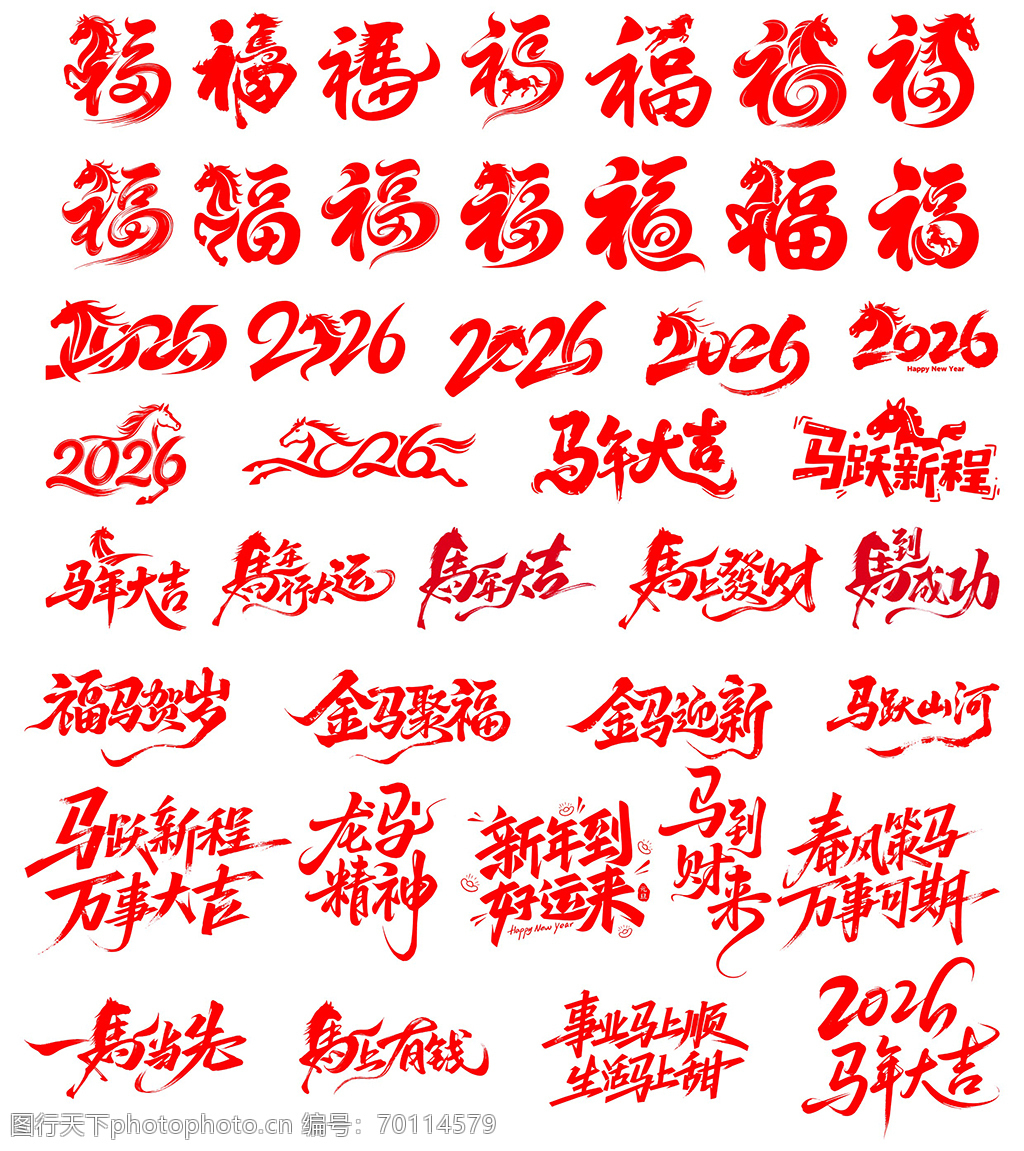 福 福 福 福 福 福 福
福 福 福 福 福 福 福
2026 2026 2026 2026 2026
Happy New Year
2026 2026 马年大吉 马跃新程
马年大吉 馬年行大运 馬年大吉 馬上發财 馬到成功
福马贺岁 金马聚福 金马迎新 马跃山河
马跃新程
万事大吉
龙马
精神
新年到
好运来
Happy New Year
马到
财来
春风策马
万事可期
一馬当先 馬上有钱
事业马上顺
生活马上甜
2026
马年大吉
图行天下 photophoto.cn 编号：70114579